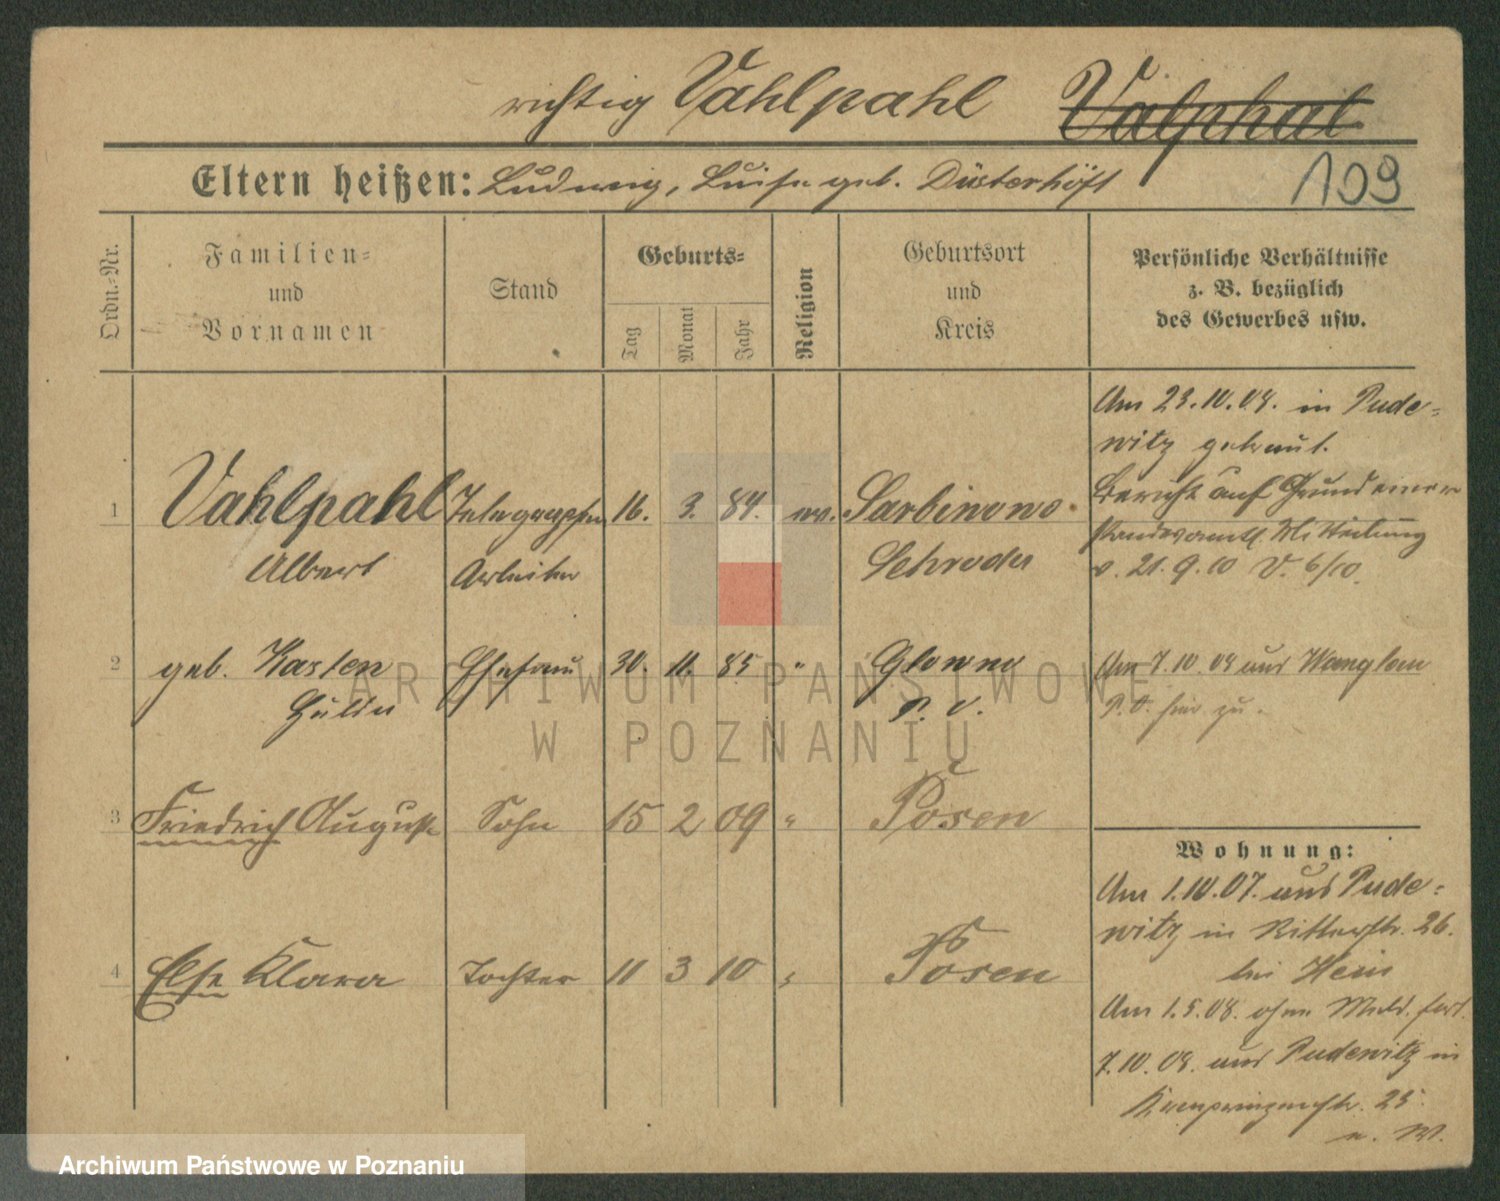 richtig Vahlpahl Valphal
Eltern heißen: Ludwig, Luise geb. Düsterhöft
109
Ordn.-Nr.
Familien-
und
Vornamen
Stand
Geburts-
Tag
Monat
Jahr
Religion
Geburtsort
und
Kreis
Persönliche Verhältnisse
z. B. bezüglich
des Gewerbes usw.
1 Vahlpahl Telegraphen 16. 3. 84. ev. Sarbinowo
Albert Arbeiter Schroda
Am 23.10.08. in Pude-
witz getraut.
Bericht auf Grund einer
standesamtl. Mitteilung
v. 21.9.10 V. 6/10.
2 geb. Kasten Ehefrau 30. 11. 85 " Glowno
Hulda P. O.
Am 7.10.08 aus Wanglau
P.O. hier zu.
3 Friedrich August Sohn 15 2 09 " Posen
4 Else Klara Tochter 11 3 10 " Posen
Wohnung:
Am 1.10.07. aus Pude-
witz in Ritterstr. 26.
bei Hein
Am 1.5.08. ohne Meld. fort.
7.10.08. aus Pudewitz in
Kronprinzenstr. 25
n. W.
ARCHIWUM PAŃSTWOWE
W POZNANIU
Archiwum Państwowe w Poznaniu